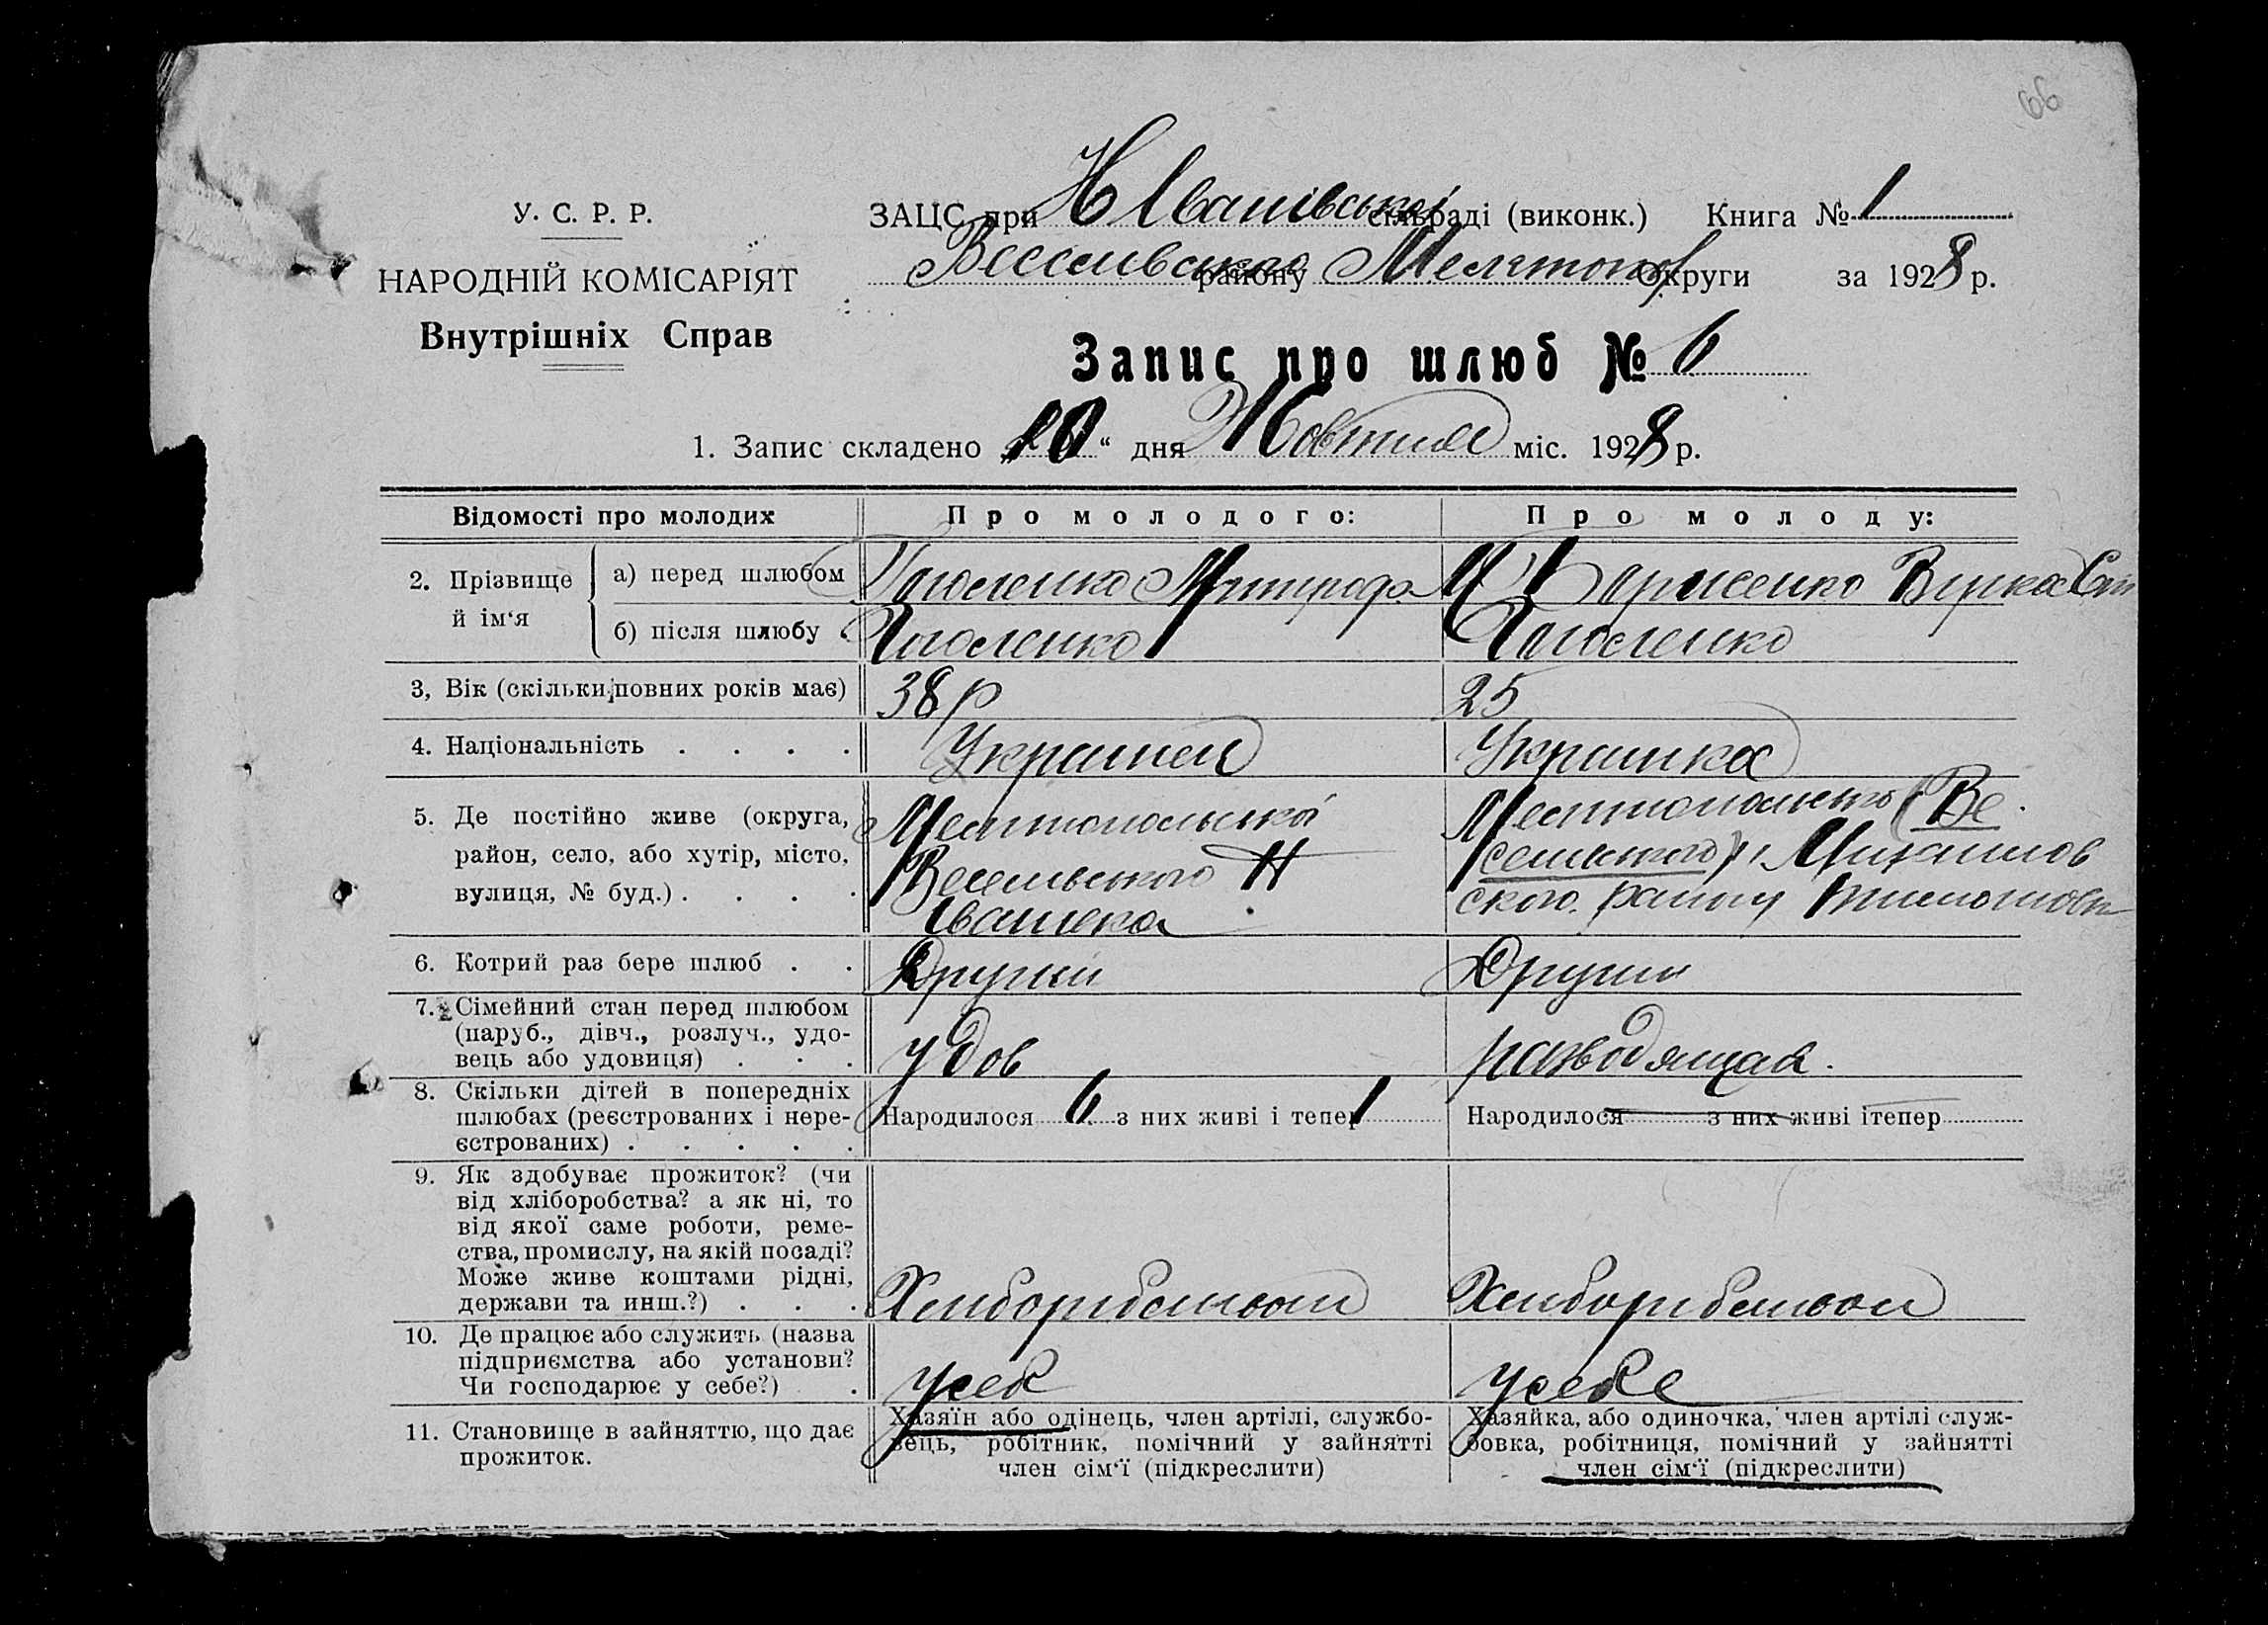 66
У. С. Р. Р.
НАРОДНІЙ КОМІСАРІЯТ
Внутрішніх Справ
ЗАЦС при Н Іванівській сільраді (виконк.) Книга № 1
Веселівського району Мелітопол Округи за 1928 р.
Запис про шлюб № 6
1. Запис складено „10“ дня Жовтня міс. 1928 р.
Відомості про молодих
Про молодого:
Про молоду:
2. Прізвище й ім‘я
а) перед шлюбом
Гоголенко Митроф. М
Борисенко Вірка
б) після шлюбу
Гоголенко
Гоголенко
3, Вік (скільки повних років має)
38 р
25
4. Національність . . . .
Украинец
Украинка
5. Де постійно живе (округа,
район, село, або хутір, місто,
вулиця, № буд.) . . . .
Мелитопольской
Веселовського Н
Івановка
Мелитопольского (Ве
селовского) Михайлов
ского району
6. Котрий раз бере шлюб . .
Другий
Другий
7. Сімейний стан перед шлюбом
(паруб., дівч., розлуч., удо-
вець або удовиця) . . .
удов
разводящая.
8. Скільки дітей в попередніх
шлюбах (реєстрованих і нере-
єстрованих) . . . . .
Народилося 6 з них живі і тепер 1
Народилося — з них живі ітепер
9. Як здобуває прожиток? (чи
від хліборобства? а як ні, то
від якої саме роботи, реме-
ства, промислу, на якій посаді?
Може живе коштами рідні,
держави та инш.?) . . .
Хлиборобством
Хлиборобством
10. Де працює або служить (назва
підприємства або установи?
Чи господарює у себе?) .
у себе
у себе
11. Становище в зайняттю, що дає
прожиток.
Хазяїн або одінець, член артілі, службо-
вець, робітник, помічний у зайнятті
член сім‘ї (підкреслити)
Хазяйка, або одиночка, член артілі служ-
бовка, робітниця, помічний у зайнятті
член сім‘ї (підкреслити)